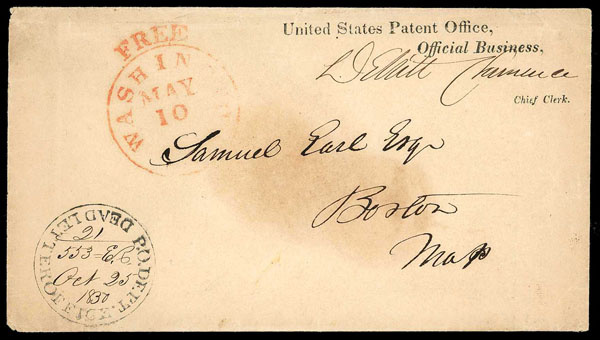 FREE
WASHIN
MAY
10
United States Patent Office,
Official Business,
DeWitt C. Lawrence
Chief Clerk.
Samuel Earl Esqr
Boston
Mass
P.O. DEPT. DEAD LETTER OFFICE.
21
553=E.C
Oct 25
1850